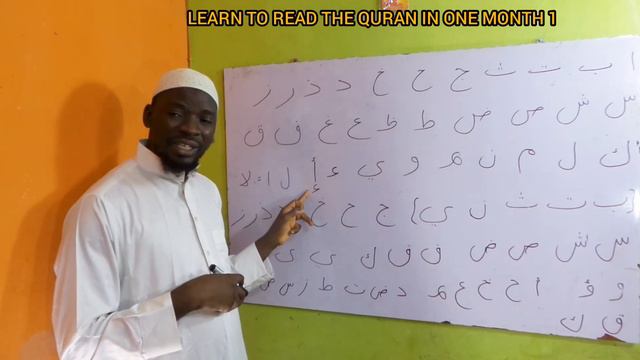 LEARN TO READ THE QURAN IN ONE MONTH 1
ا ب ت ث ج ح خ د ذ ر ز
س ش ص ض ط ظ ع غ ف ق
ك ل م ن ه و ي ء أ ل ا = لا
ب ت ث ن ي } ج ح خ د ذ ر ز
س ش ص ض ف ق ك ي
و ؤ أ ح خ ع م د ض ت ط ز س
ق ك